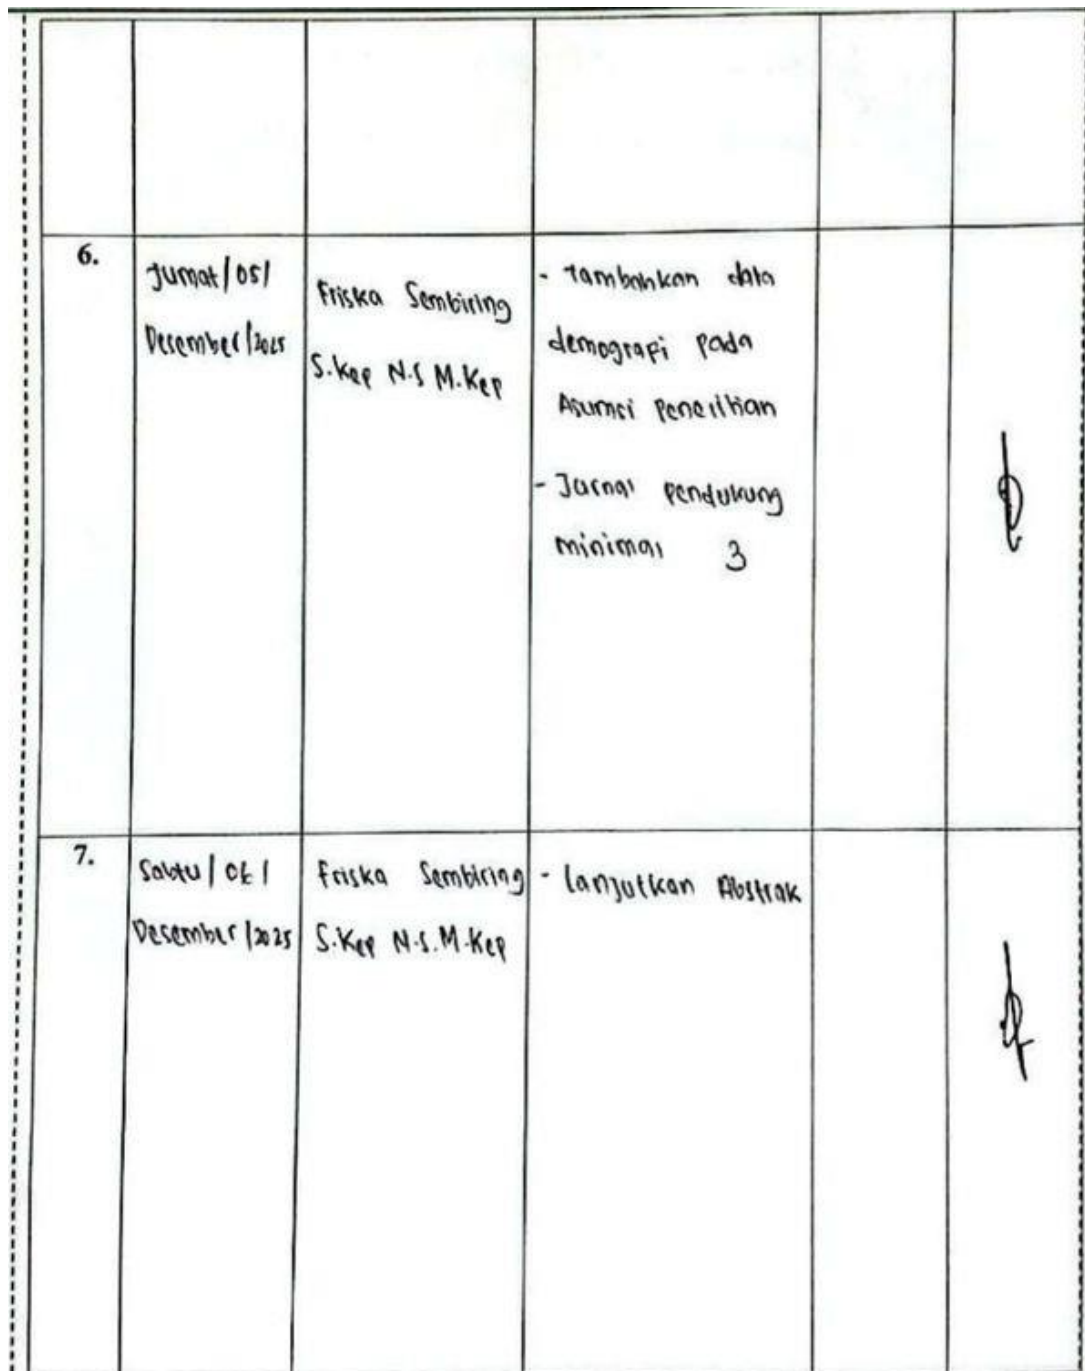 6.
Jumat/05/
Desember/2025
Friska Sembiring
S.Kep N.S M.Kep
- Tambahkan data
demografi pada
Asumsi penelitian
- Jurnal pendukung
minimal 3
7.
Sabtu/06/
Desember/2025
Friska Sembiring
S.Kep N.S. M.Kep
- Lanjutkan Abstrak